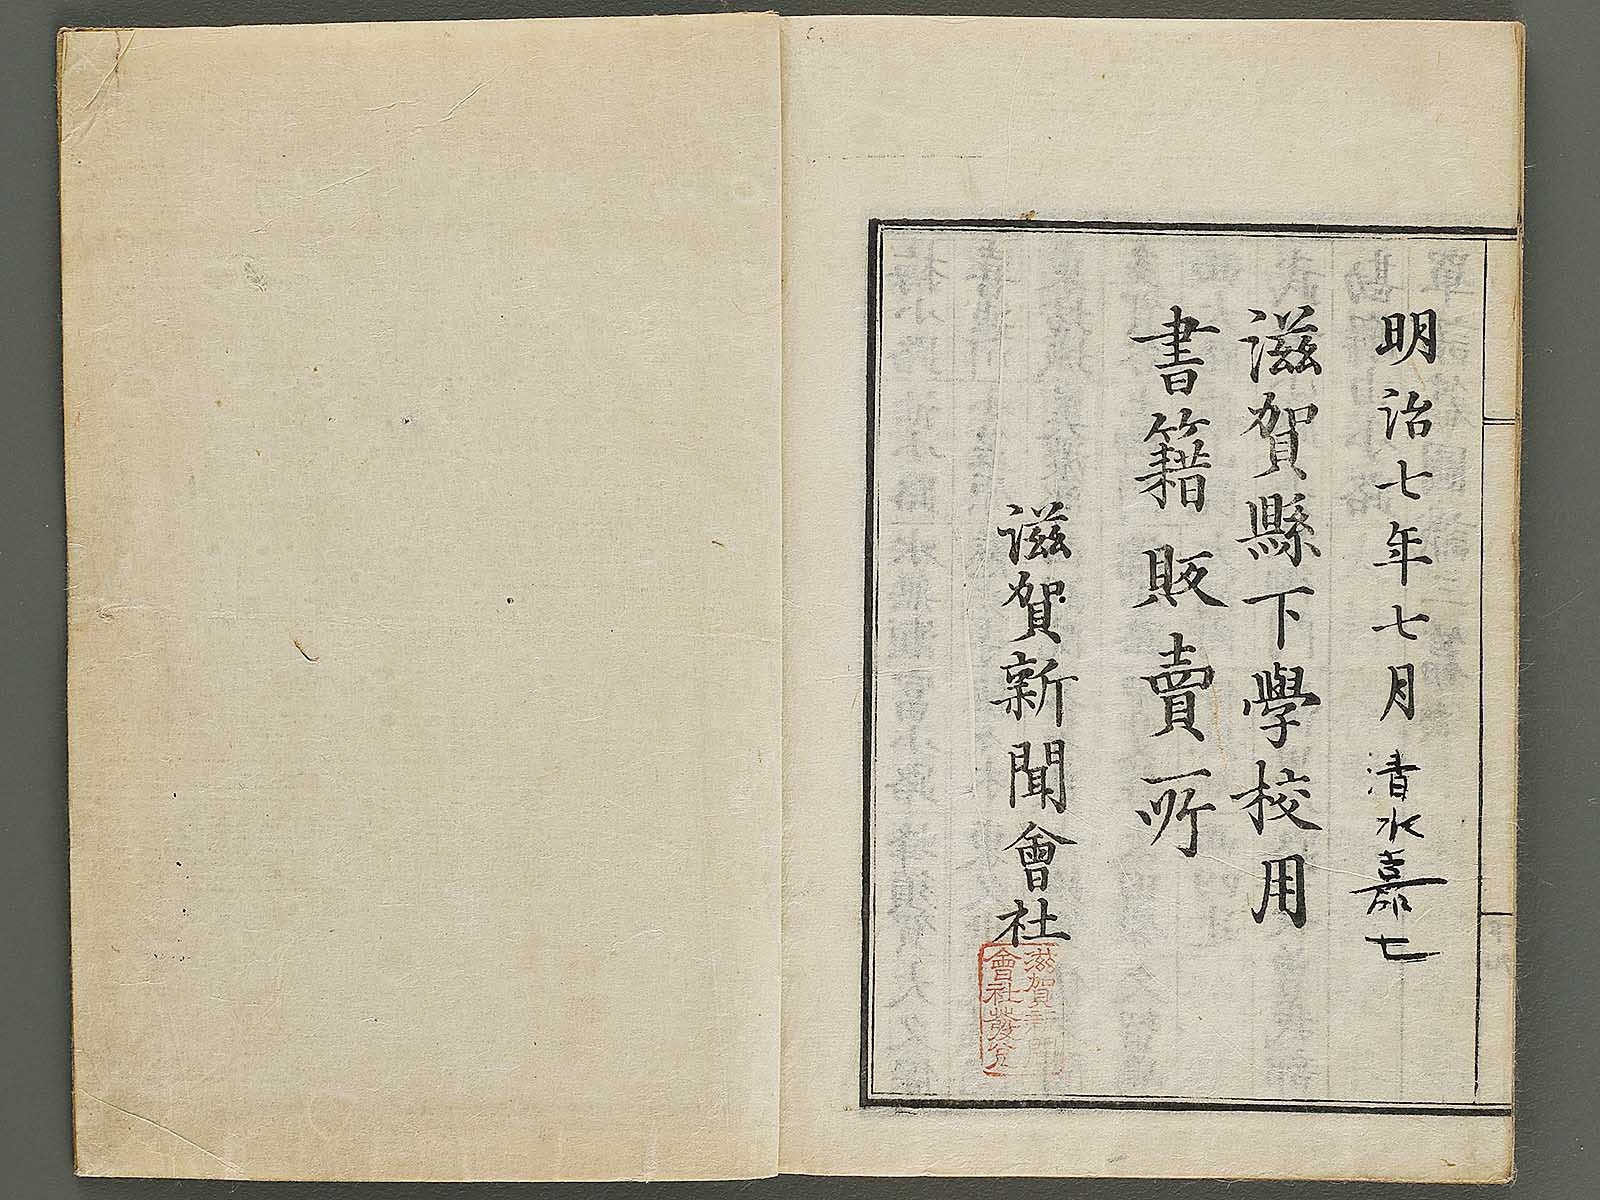 明治七年七月 清水嘉七
滋賀縣下學校用
書籍販賣所
滋賀新聞會社
滋賀新聞
會社發兌